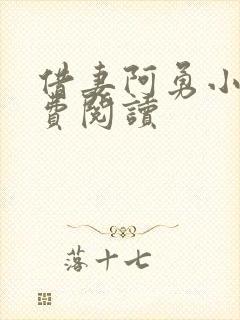 借妻阿勇小
費閱讀
落十七